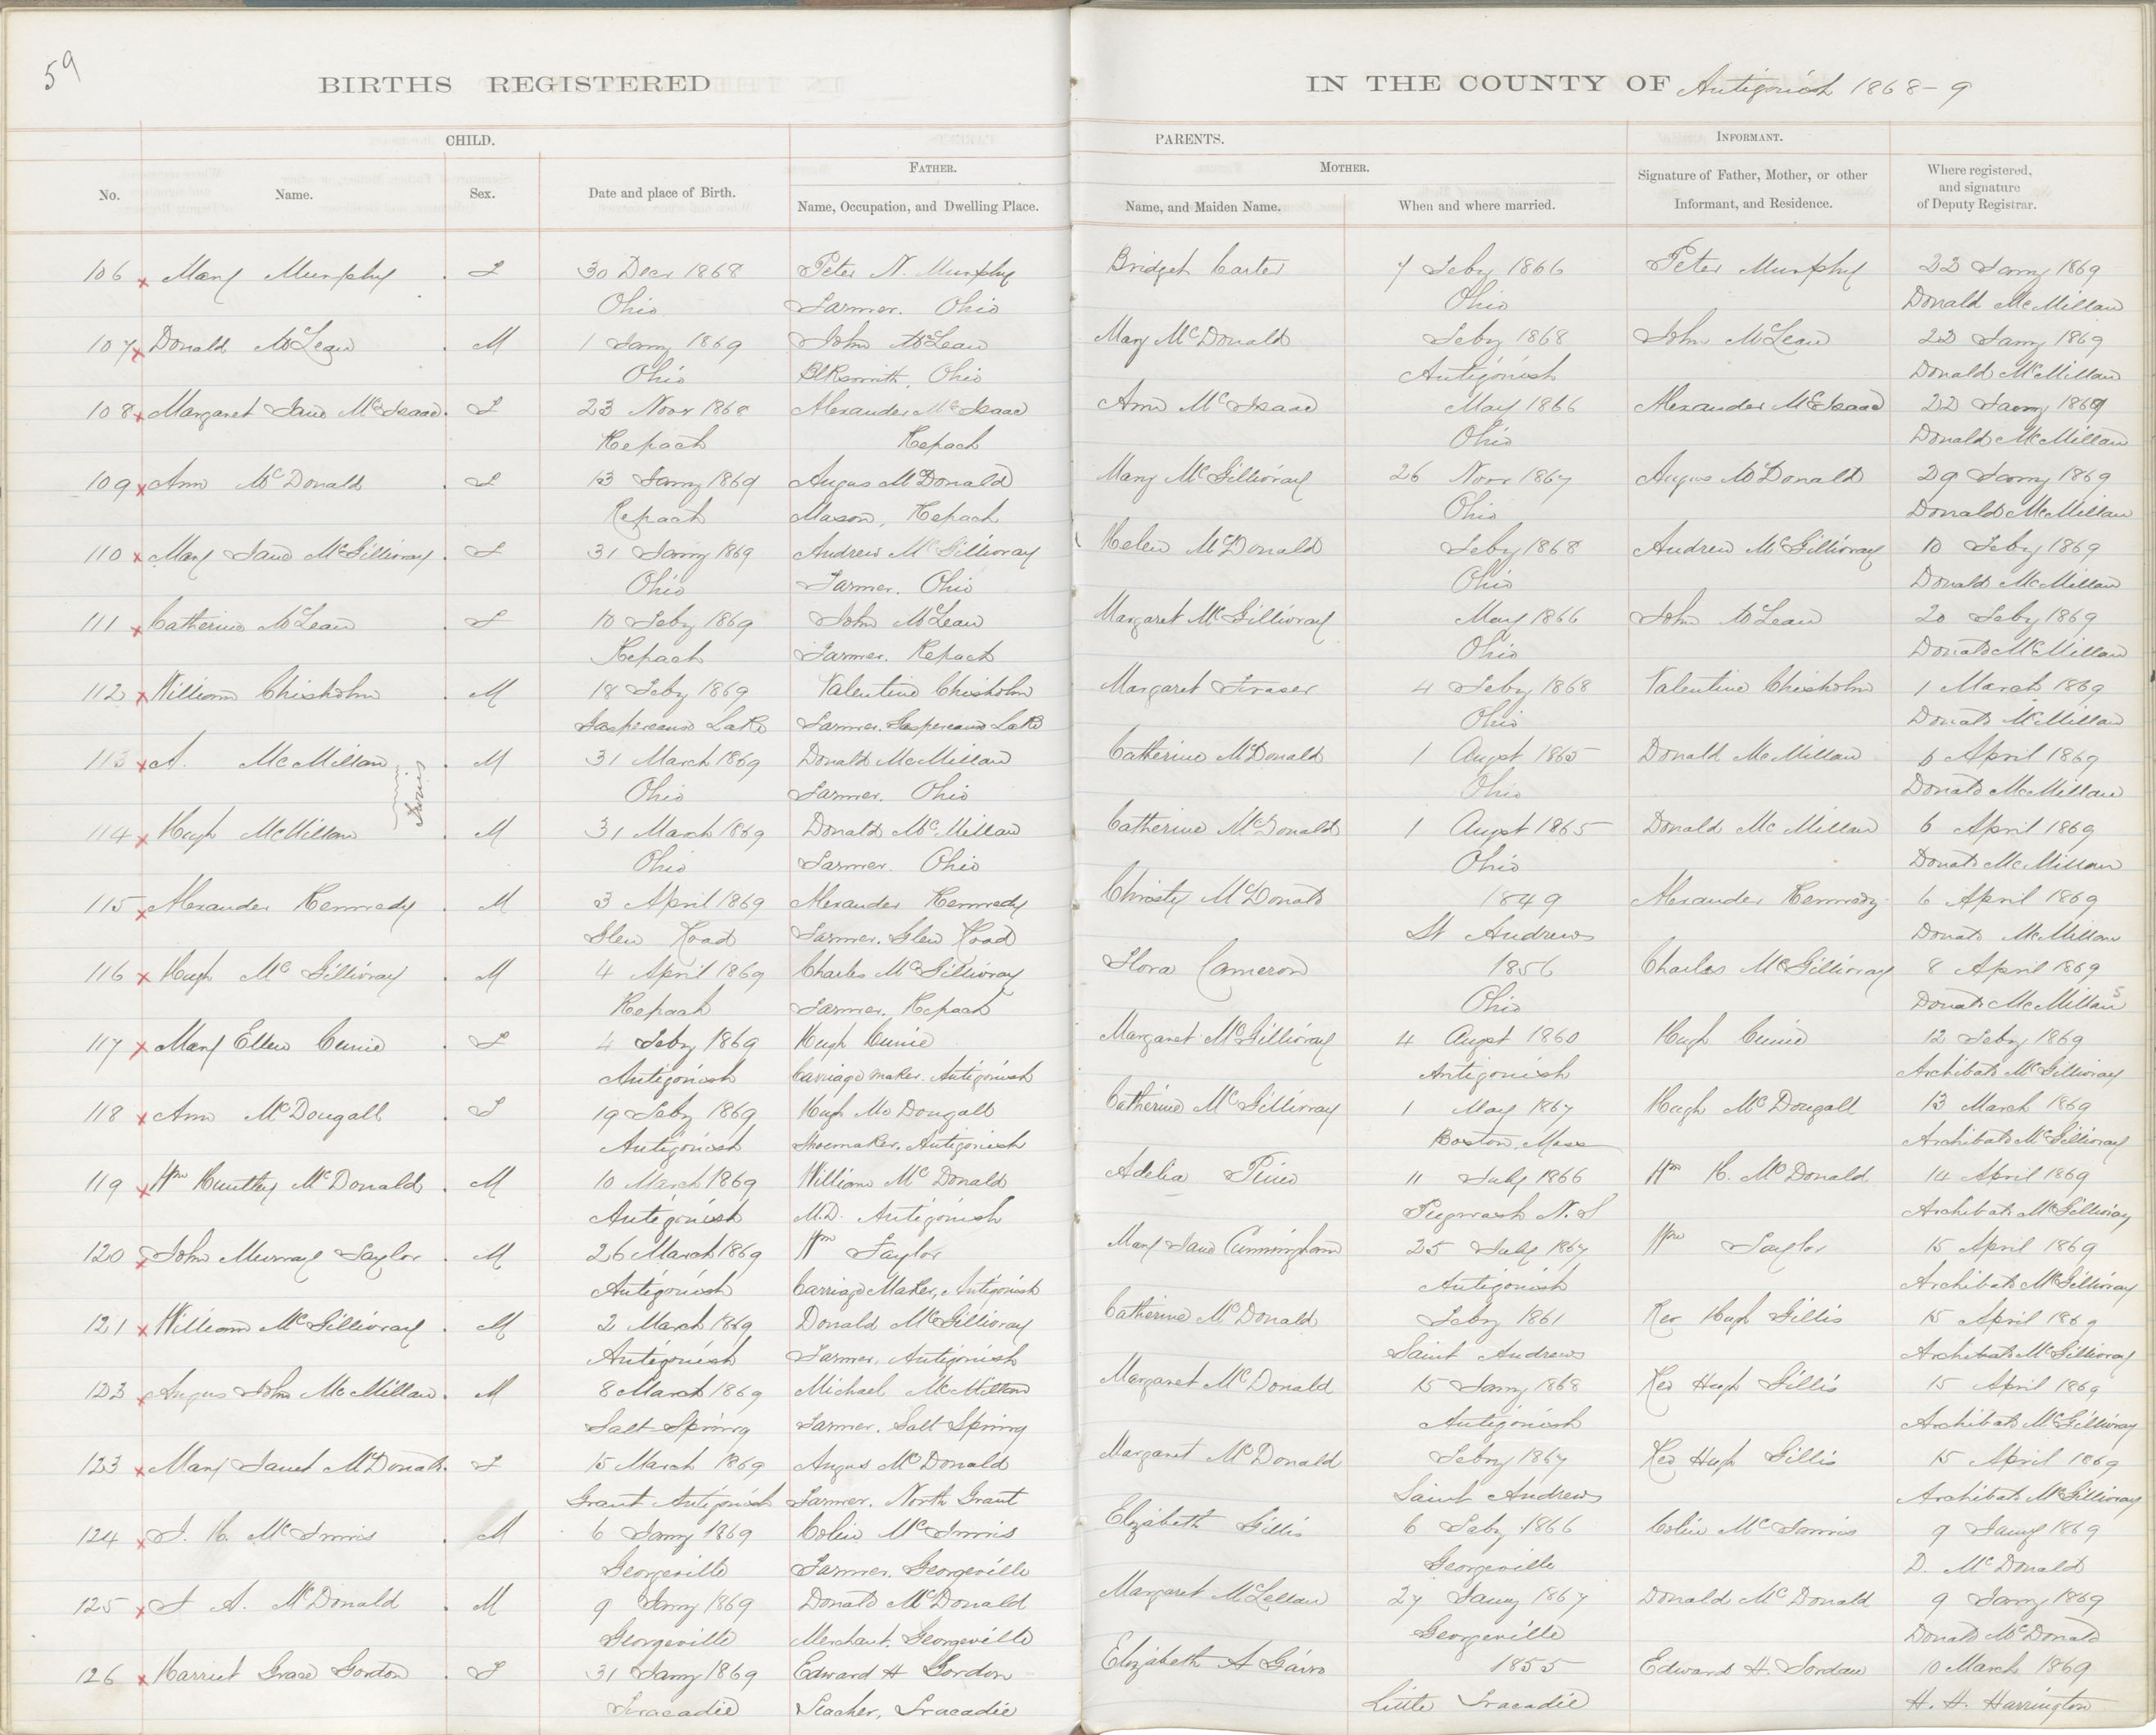 59
BIRTHS REGISTERED IN THE COUNTY OF Antigonish 1868-9
CHILD. PARENTS. INFORMANT.
FATHER. MOTHER.
No. Name. Sex. Date and place of Birth. Name, Occupation, and Dwelling Place. Name, and Maiden Name. When and where married. Signature of Father, Mother, or other Informant, and Residence. Where registered, and signature of Deputy Registrar.
106 x Mary Murphy . F 30 Decr 1868 Peter N. Murphy Bridget Carter 7 Feby 1866 Peter Murphy 22 Jany 1869
Ohio Farmer. Ohio Ohio Donald McMillan
107 x Donald McLean . M 1 Jany 1869 John McLean Mary McDonald Feby 1868 John McLean 22 Jany 1869
Ohio Blksmith, Ohio Antigonish Donald McMillan
108 x Margaret Jane McIsaac . F 23 Novr 1868 Alexander McIsaac Ann McIsaac May 1866 Alexander McIsaac 22 Jany 1869
Kepach Kepach Ohio Donald McMillan
109 x Ann McDonald . F 13 Jany 1869 Angus McDonald Mary McGillivray 26 Novr 1867 Angus McDonald 29 Jany 1869
Kepach Mason, Kepach Ohio Donald McMillan
110 x Mary Jane McGillivray . F 31 Jany 1869 Andrew McGillivray Helen McDonald Feby 1868 Andrew McGillivray 10 Feby 1869
Ohio Farmer. Ohio Ohio Donald McMillan
111 x Catherine McLean . F 10 Feby 1869 John McLean Margaret McGillivray May 1866 John McLean 20 Feby 1869
Kepach Farmer. Kepach Ohio Donald McMillan
112 x William Chisholm . M 18 Feby 1869 Valentine Chisholm Margaret Fraser 4 Feby 1868 Valentine Chisholm 1 March 1869
Gaspereaux Lake Farmer. Gaspereaux Lake Ohio Donald McMillan
113 x A. McMillan . M 31 March 1869 Donald McMillan Catherine McDonald 1 Augst 1865 Donald McMillan 6 April 1869
Twins
Ohio Farmer. Ohio Ohio Donald McMillan
114 x Hugh McMillan . M 31 March 1869 Donald McMillan Catherine McDonald 1 Augst 1865 Donald McMillan 6 April 1869
Ohio Farmer. Ohio Ohio Donald McMillan
115 x Alexander Kennedy . M 3 April 1869 Alexander Kennedy Christy McDonald 1849 Alexander Kennedy 6 April 1869
Glen Road Farmer. Glen Road St Andrews Donald McMillan
116 x Hugh McGillivray . M 4 April 1869 Charles McGillivray Flora Cameron 1856 Charles McGillivray 8 April 1869
Kepach Farmer. Kepach Ohio Donald McMillan
117 x Mary Ellen Cunie . F 4 Feby 1869 Hugh Cunie Margaret McGillivray 4 Augst 1860 Hugh Cunie 12 Feby 1869
Antigonish Carriage maker. Antigonish Antigonish Archibald McGillivray
118 x Ann McDougall . F 19 Feby 1869 Hugh McDougall Catherine McGillivray 1 May 1867 Hugh McDougall 13 March 1869
Antigonish Shoemaker. Antigonish Boston, Mass Archibald McGillivray
119 x Wm Huntley McDonald . M 10 March 1869 William McDonald Adelia 11 July 1866 Wm H. McDonald 14 April 1869
Antigonish M.D. Antigonish Pugwash N.S Archibald McGillivray
120 x John Murray Taylor . M 26 March 1869 Wm Taylor Mary Jane Cunningham 25 July 1867 Wm Taylor 15 April 1869
Antigonish Carriage Maker, Antigonish Antigonish Archibald McGillivray
121 x William McGillivray . M 2 March 1869 Donald McGillivray Catherine McDonald Feby 1861 Rev Hugh Gillis 15 April 1869
Antigonish Farmer, Antigonish Saint Andrews Archibald McGillivray
122 x Angus John McMillan . M 8 March 1869 Michael McMillan Margaret McDonald 15 Jany 1868 Rev Hugh Gillis 15 April 1869
Salt Spring Farmer. Salt Spring Antigonish Archibald McGillivray
123 x Mary Janet McDonald . F 15 March 1869 Angus McDonald Margaret McDonald Feby 1867 Rev Hugh Gillis 15 April 1869
Grant Antigonish Farmer. North Grant Saint Andrews Archibald McGillivray
124 x J. H. McInnis . M 6 Jany 1869 Colin McInnis Elizabeth Gillis 6 Feby 1866 Colin McInnis 9 Jany 1869
Georgeville Farmer. Georgeville Georgeville D. McDonald
125 x J A. McDonald . M 9 Jany 1869 Donald McDonald Margaret McLellan 27 Jany 1867 Donald McDonald 9 Jany 1869
Georgeville Merchant. Georgeville Georgeville Donald McDonald
126 x Harriet Grace Gordon . F 31 Jany 1869 Edward H Gordon Elizabeth A 1855 Edward H. Jordan 10 March 1869
Tracadie Teacher, Tracadie Little Tracadie H. H. Harrington